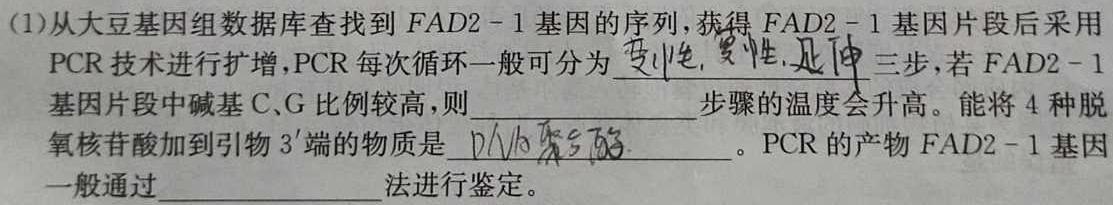 (1)从大豆基因组数据库查找到 FAD2-1 基因的序列,获得 FAD2-1 基因片段后采用
PCR 技术进行扩增,PCR 每次循环一般可分为 变性,复性,延伸 三步,若 FAD2-1
基因片段中碱基 C、G 比例较高,则__________步骤的温度会升高。能将 4 种脱
氧核苷酸加到引物 3′端的物质是 DNA聚合酶 。PCR 的产物 FAD2-1 基因
一般通过__________法进行鉴定。